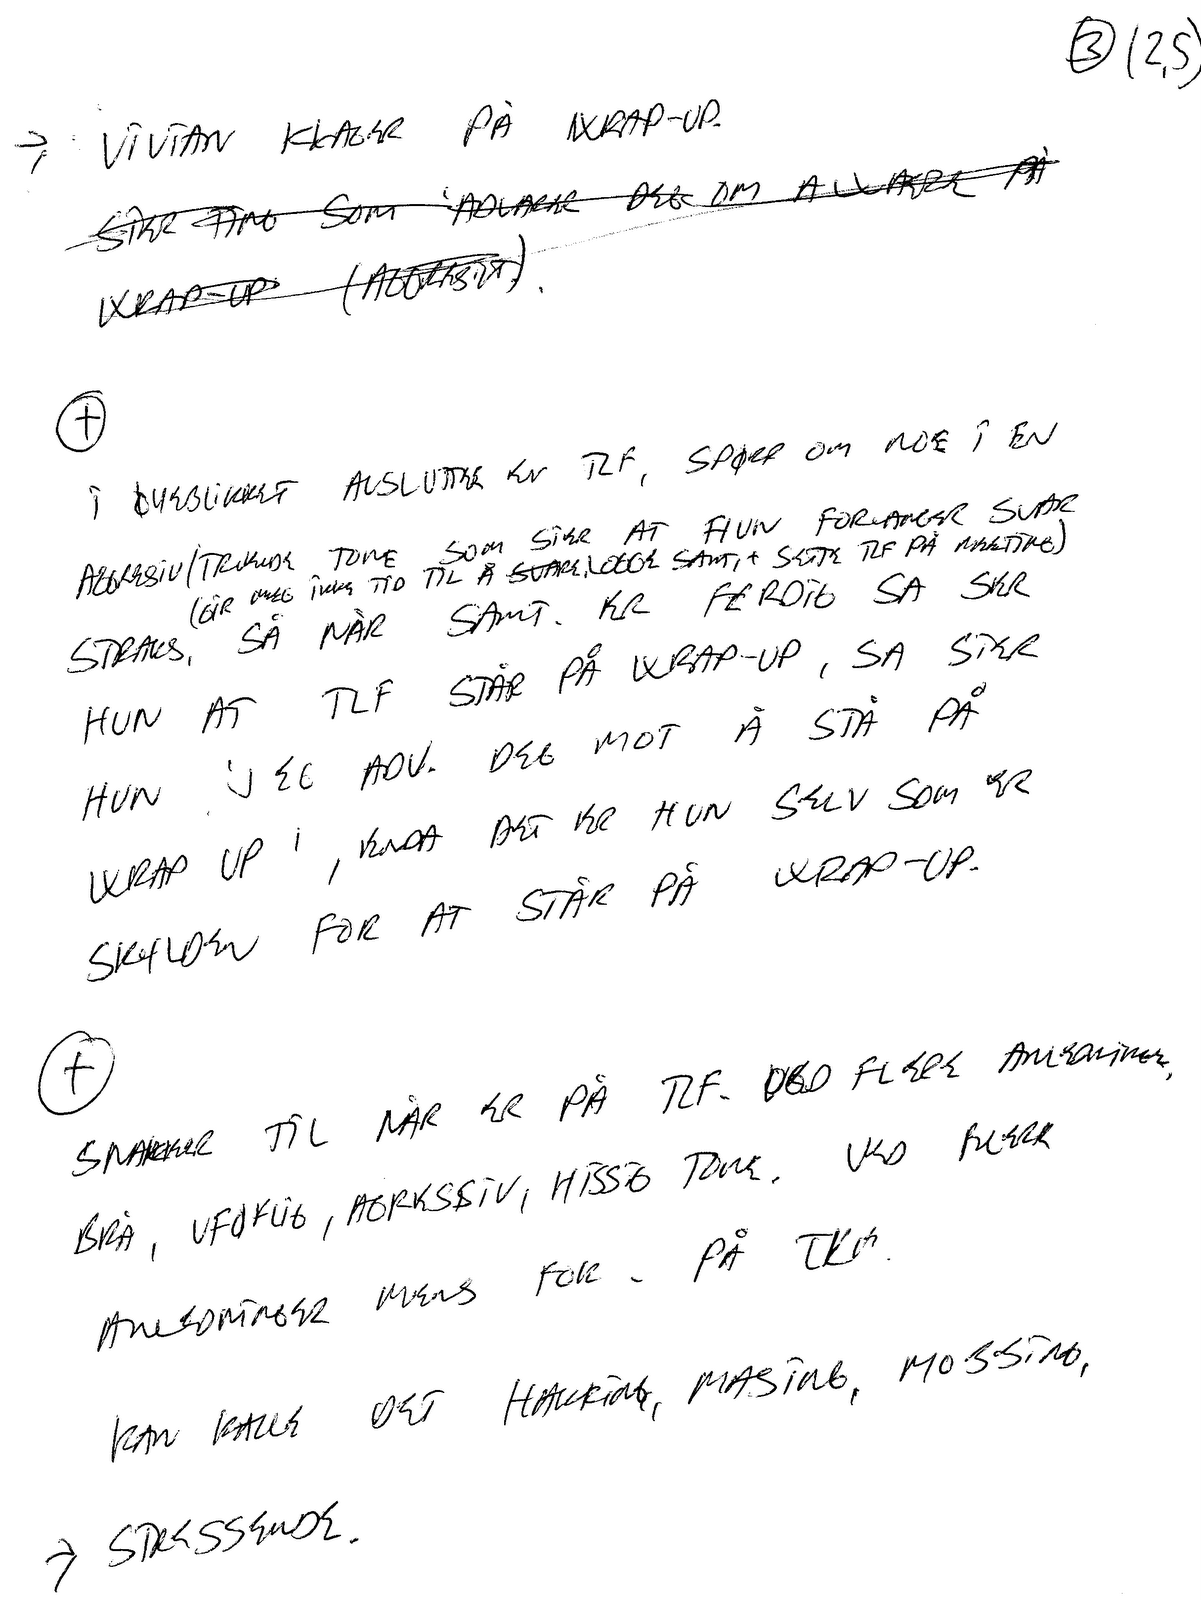 ③ (2,5)
→ VIVIAN KLAGER PÅ WRAP-UP.
SIER TING SOM 'ADVARER DEG OM Å VÆRE PÅ
WRAP-UP' (AGGRESIVT).
+
I ØYEBLIKKET AVSLUTTER EN TLF, SPØRR OM NOE I EN
AGGRESIV/TRUENDE TONE SOM SIER AT HUN FORLANGER SVAR
(GIR MEG IKKE TID TIL Å SVARE, LOGGE SAMT, + SETTE TLF PÅ MEETING)
STRAKS, SÅ NÅR SAMT. ER FERDIG SA SER
HUN AT TLF STÅR PÅ WRAP-UP, SA SIER
HUN 'JEG ADV. DEG MOT Å STÅ PÅ
WRAP UP', ENDA DET ER HUN SELV SOM ER
SKYLDEN FOR AT STÅR PÅ WRAP-UP.
+
SNAKKER TIL NÅR ER PÅ TLF. VED FLERE ANLEDNINGER,
BRÅ, UFØLIG, AGRESSIV, HISSIG TONE. VED FLERE
ANLEDNINGER MENS FOR - PÅ
KAN KALLE DET HAKKING, MASING, MOSSING,
→ STRESSENDE.